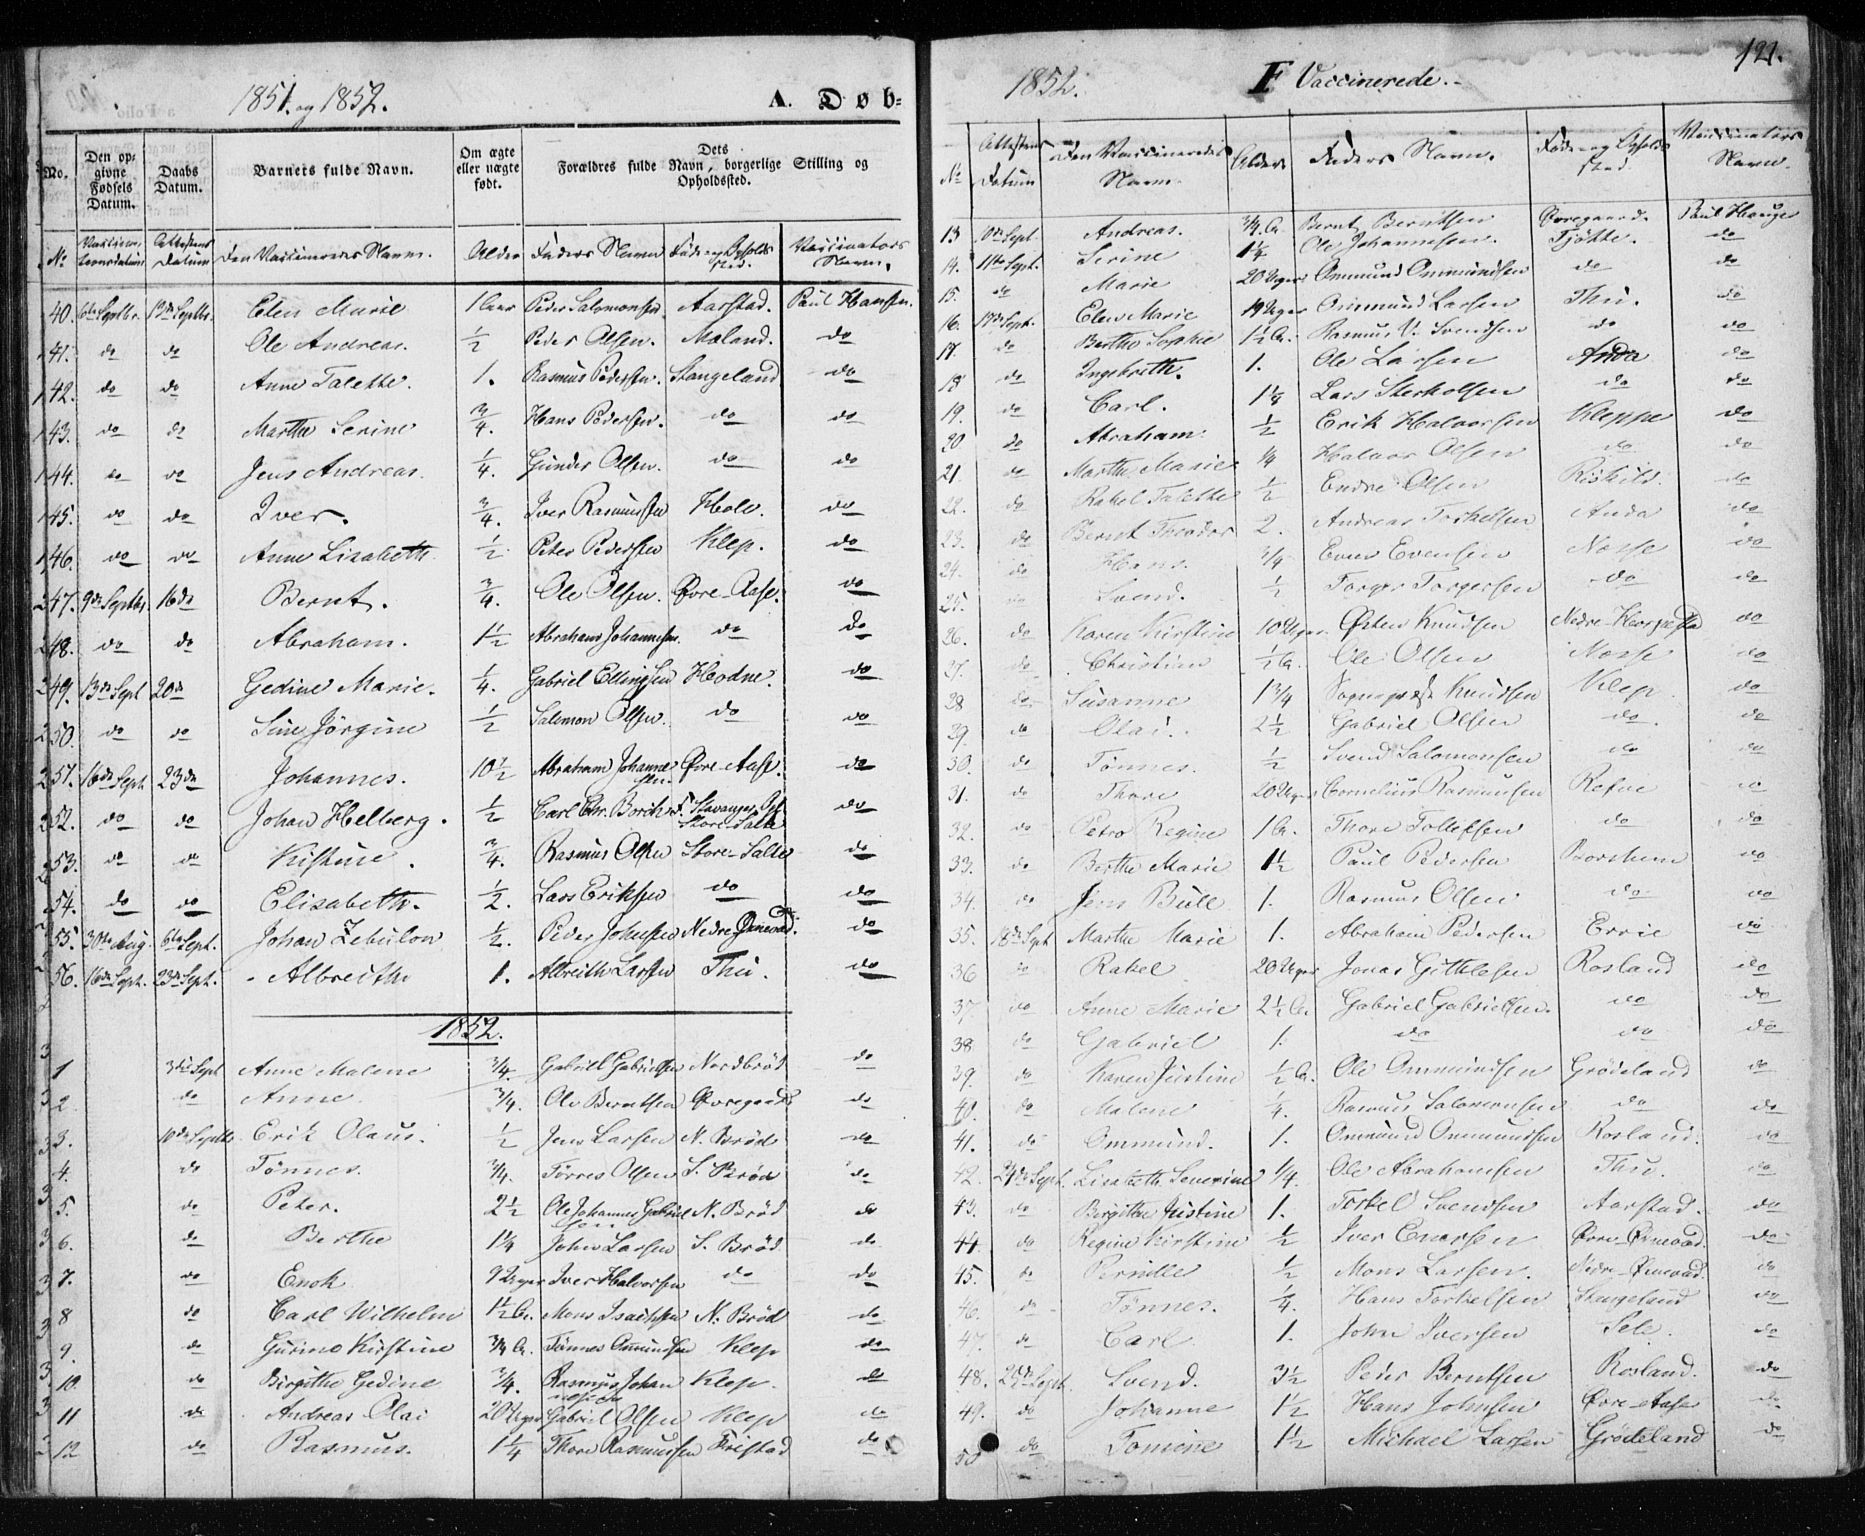 1851. og 1852.
A. Døb-
No. Den opgivne Fødsels Datum. Daabs Datum. Barnets fulde Navn. Om ægte eller uægte født. Forældres fulde Navn, borgerlige Stilling og Dets Opholdssted.
No Vaccinationsdatum Attestens Datum Den Vaccineredes Navn. Alder Faders Navn Føde og Opholdssted. Vaccinators Navn.
40. 6te Septbr. 13de Septbr. Elen Marie 1 Aar Peder Salomonsen Aarstad. Paul Hansen.
41. do do Ole Andreas. 1/2 Peder Olsen. Mæland. do
42. do do Anne Talette. 1. Rasmus Pedersen. Stangeland do
43. do do Marthe Serine 3/4. Hans Pedersen. do do
44. do do Jens Andreas. 1/4. Gunder Olsen. do do
45. do do Iver. 3/4. Iver Rasmussen Hole. do
46. do do Anne Lisabeth 1/2. Peter Pedersen Klep. do
47. 9de Septbr. 16de Bernt. 3/4. Ole Olsen. Øvre-Aase. do
48. do do Abraham. 1 1/2 Abraham Johannesen. do do
49. 13de Sept 20de Gedine Marie. 1/4. Gabriel Ellingsen Hodne. do
50. do do Sine Jørgine 1/2 Salomon Olsen. do do
51. 16de Sept 23de Johannes. 10 1/2 Abraham Johannesen Øvre Aase. do
52. do do Johan Helberg. 1/2 Carl Chr. Borch Store-Salte do
53. do do Kistine. 3/4. Rasmus Olsen Store-Salte do
54. do do Elisabeth. 1/2. Lars Eriksen do do
55. 30te Aug. 6te Sept. Johan Zebulon 1/2. Peder Johnsen Nedre Øxnevad. do
56. 16de Sept. 23de Sept. Albreithe 1. Albreith Larsen Thu. do
1852.
1 3die Sept Anne Malene 3/4. Gabriel Gabrielsen Nordbrød do
2. do Anne 3/4. Ole Berntsen Øvregaard do
3. 10de Septbr Erik Olaus. 1/2 Jens Larsen N. Brød do
4. do Tønnes. 3/4. Tørres Olsen S. Brød do
5. do Peter. 2 1/2 Ole Johannes Gabrielsen N. Brød do
6. do Berthe 1 1/4 John Larsen S. Brød. do
7. do Enok 9 Uger Iver Halvorsen do do
8 do Carl Wilhelm 1 1/2 A. Mons Isachsen N. Brød do
9. do Gurine Kirstine 3/4 A. Tønnes Ommundsen Klep do
10. do Birgithe Gedine 3/4. Rasmus Johannesen Klep. do
11 do Andreas Olai 20 Uger Gabriel Olsen Klep do
12 do Rasmus. 1 1/4 Thore Rasmussen Friestad do
1852. F Vaccinerede.
121.
No Attestens Datum Den Vaccineredes Navn. Alder Faders Navn. Føde og Opholdssted Vaccinators Navn.
13 10de Sept. Andreas. 3/4 A. Bernt Berntsen Øvregaard. Paul Hauge
14. 11te Sept. Serine 1 1/4 Ole Johannesen. Tjøtte. do
15. do Marie 20 Uger Ommund Ommundsen do do
16. 17de Sept. Elen Marie 19 Uger Ommund Larsen Thu. do
17. do Berthe Sophie 1 1/2 A. Rasmus V. Svendsen do do
18 do Ingebrethe. 1. Ole Larsen Anda do
19. do Carl. 1 1/4 Lars Therkelsen do do
20 do Abraham 1/2 Erik Halvorsen Kleppe do
21. do Marthe Marie 1/4 Halvor Olsen do do
22. do Rakel Talette 1/2 Endre Olsen do
23. do Bernt Theodor 2. Andreas Torkelsen Anda do
24. do Hans. 3/4 Even Evensen Nosse do
25. do Svend. 1/2 Torger Torgersen do do
26. do Karen Kirstine 10 Uger Østen Knudsen Nedre-Hoppestad do
27. do Christian 1/2 A. Ole Olsen Nosse do
28 do Susanne 1 3/4 Sognepræst Knudsen Klep do
29. do Olai. 2 1/2 Gabriel Olsen do. do
30. do Tønnes. 1/2 Svend Salomonsen do do
31. do Thore 20 Uger Cornelius Rasmussen Refve do
32. do Petro Regine 1 A. Thore Tollefsen do do
33. do Berthe Marie 1 1/2 Paul Pedersen Borshem do
34. do Jens Bull 1. Rasmus Olsen do do
35. 18de Sept Marthe Marie 1. Abraham Pedersen Errie do
36 do Rakel 20 Uger Jonas Gitlesen Rosland do
37. do Anne Marie 2 1/2 A. Gabriel Gabrielsen. do do
38. do Gabriel 1. do do do
39. do Karen Justine 1/2 A. Ole Ommundsen Grødeland do
40. do Malene 1/4. Rasmus Salomonsen do do
41. do Ommund. 1. Ommund Ommundsen Rosland. do
42. 24de Sept. Lisabeth Severine 1/4. Ole Abrahamsen Thu. do
43. do Birgithe Justine 1. Torkel Svendsen Aarstad. do
44. do Regine Kirstine 1/2 Iver Enersen Øvre-Øxnevad. do
45. do Pernille 1/2 Mons Larsen. Nedre-Øxnevad. do
46. do Tønnes. 1/4. Hans Torkelsen Stangeland do
47. do Carl 1. John Iversen Sele. do
48. Sept. Svend. 3 1/2 Peder Berntsen Rosland. do
49. do Johanne 1 1/2 Hans Johnsen Øvre-Aase do
50 do Tomine 1 1/2 Michael Larsen Grødeland do